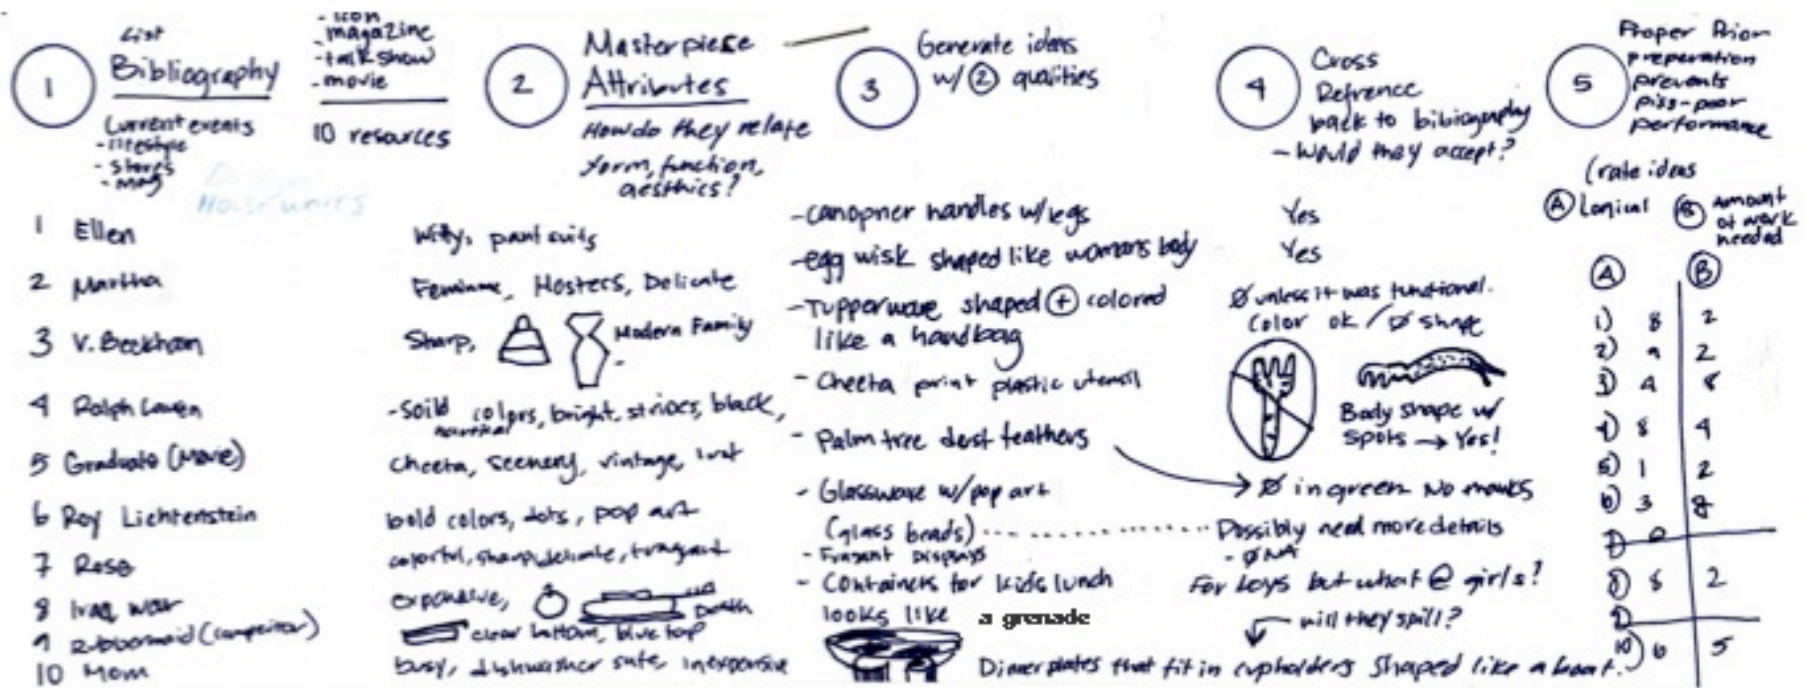 1
List
Bibliography
Current events
- lifestyle
- stores
- mag
- icon
- magazine
- talk show
- movie
10 resources
1 Ellen
2 Martha
3 V. Beckham
4 Ralph Lauren
5 Graduate (Movie)
6 Roy Lichtenstein
7 Rose
8 Iraq war
9 Rubbermaid (competitor)
10 Mom
2
Masterpiece
Attributes
How do they relate
form, function,
aesthics?
Witty, pant suits
Feminine, Hosters, Delicate
Sharp,
Modern Family
- Soild colors, bright, stripes, black,
nautical
Cheeta, Scenery, vintage,
bold colors, dots, pop art
colorful, sharp, delicate, fragrant
expensive,
Death
clear bottom, blue top
busy, dishwasher safe, inexpensive
3
Generate ideas
w/ 2 qualities
- canopner handles w/legs
- egg wisk shaped like womans body
- Tupperware shaped + colored
like a handbag
- Cheeta print plastic utensil
- Palm tree dust feathers
- Glassware w/pop art
(glass beads)
- Fragant Displays
- Containers for kids lunch
looks like a grenade
Dinner plates that fit in cupholders shaped like a boat.
4
Cross
Refrence
back to bibiography
- Would they accept?
Yes
Yes
Ø unless it was functional.
Color ok / Ø shape
Body shape w/
spots → Yes!
Ø in green No monks
Possibly need more details
- Ø NA
For boys but what @ girls?
will they spill?
5
Proper Prior
preperation
prevents
piss-poor
performance
(rate ideas
A Logical B Amount
of work
needed
A B
1) 8 2
2) 9 2
3) 4 8
4) 8 4
5) 1 2
6) 3 8
7) 0
8) 8 2
9)
10) 6 5